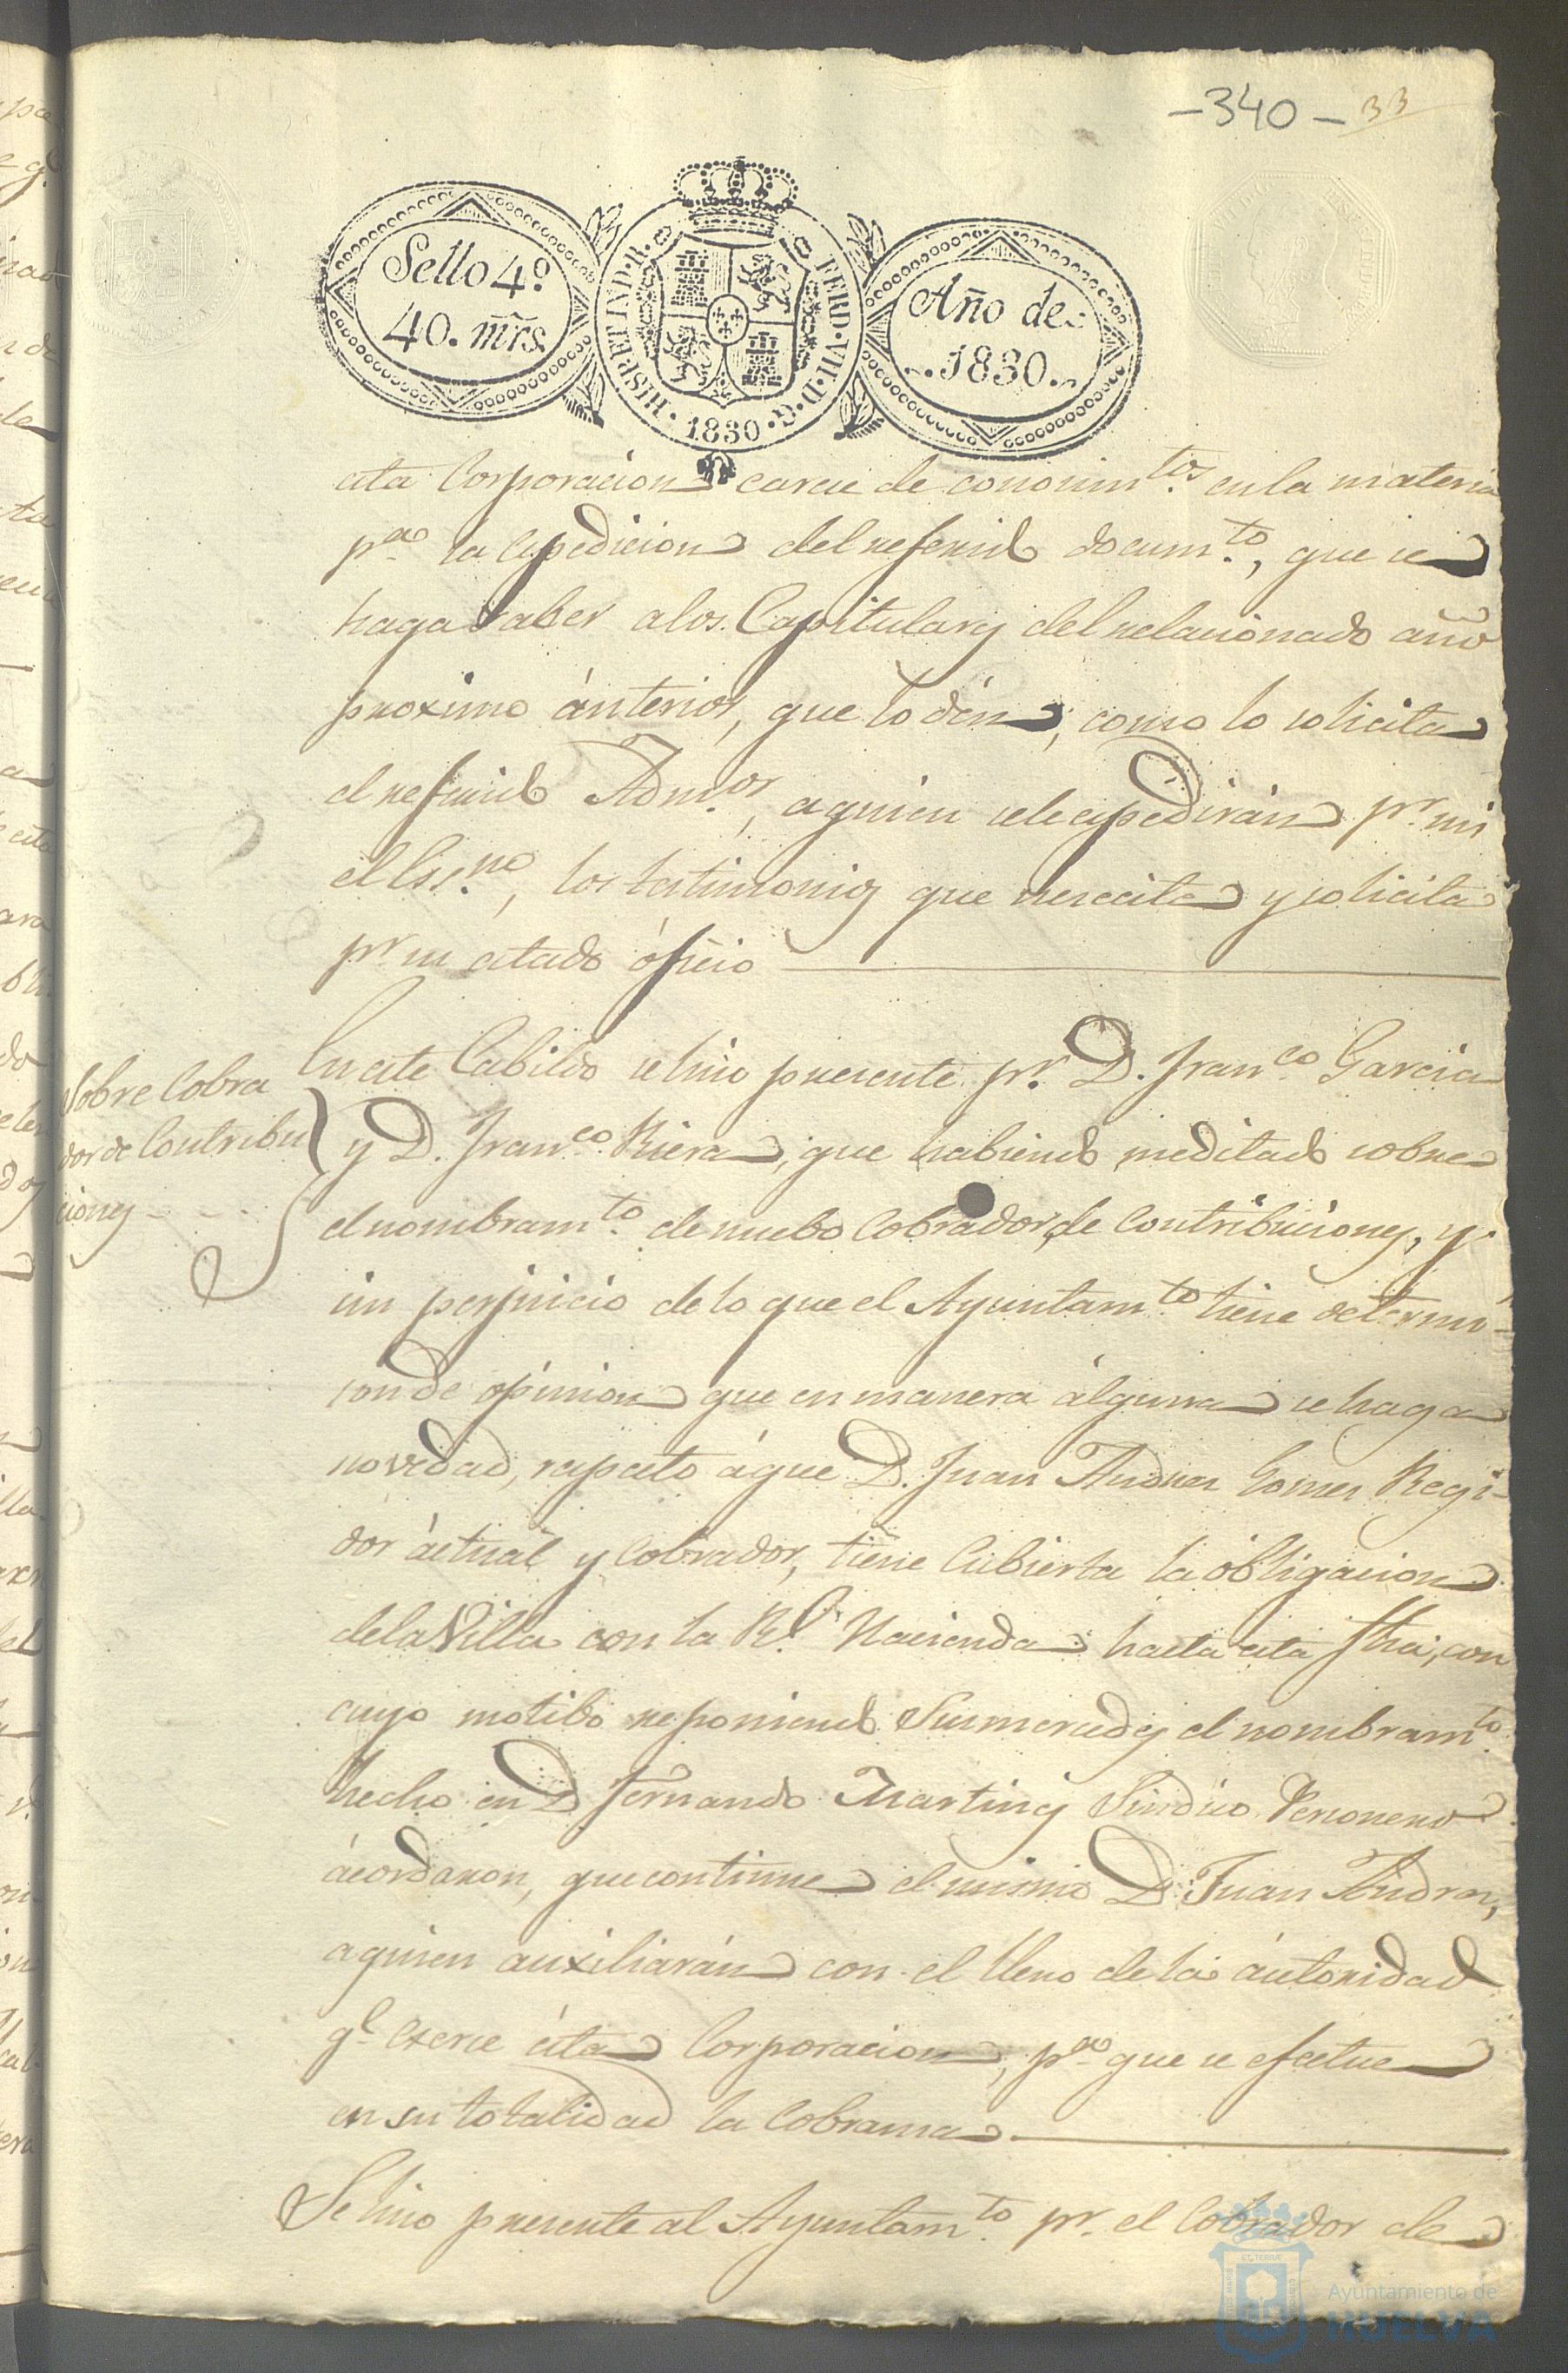 -340- 33
Sello 4º
40. mrs.
HISP. ET IND. R. FERD. VII. D. G. 1830
Año de
1830.
esta Corporacion carece de conosimtos. en la materia
pª. la espedicion del referido documto., que se
haga saber a los Capitulares del relacionado año
proximo ánterior, que lo dén, como lo solicita
el referido Admor., a quien se le espedirán pr. mi
el Essno., los testimonios que nesecita y solicita
pr. su citado óficio
Sobre Cobra
dor de Contribu
ciones
En este Cabildo se hiso presente pr. D. Franco. Garcia
y D. Franco. Riera, que habiendo meditado sobre
el nombramto. de nuebo Cobrador de Contribuciones, y
sin perjuicio de lo que el Ayuntamto. tiene determi-
son de opinion que en manera álguna se haga
novedad, respecto á que D. Juan Andres Gomes Regi-
dor áctual y Cobrador, tiene Cubierta la obligacion
de la Villa con la Rl. Hacienda hasta esta fha, con
cuyo motibo reponiendo Sus mercedes el nombramto.
hecho en D. Fernando Martines Sindico Personero
ácordaron, que continue el mismo D. Juan Andres,
a quien auxiliarán con el lleno de la áutoridad
qe. exerce ésta Corporacion, pª. que se efectue
en su totalidad la Cobransa
Se hiso presente al Ayuntamto. pr. el Cobrador de
Ayuntamiento de
HUELVA